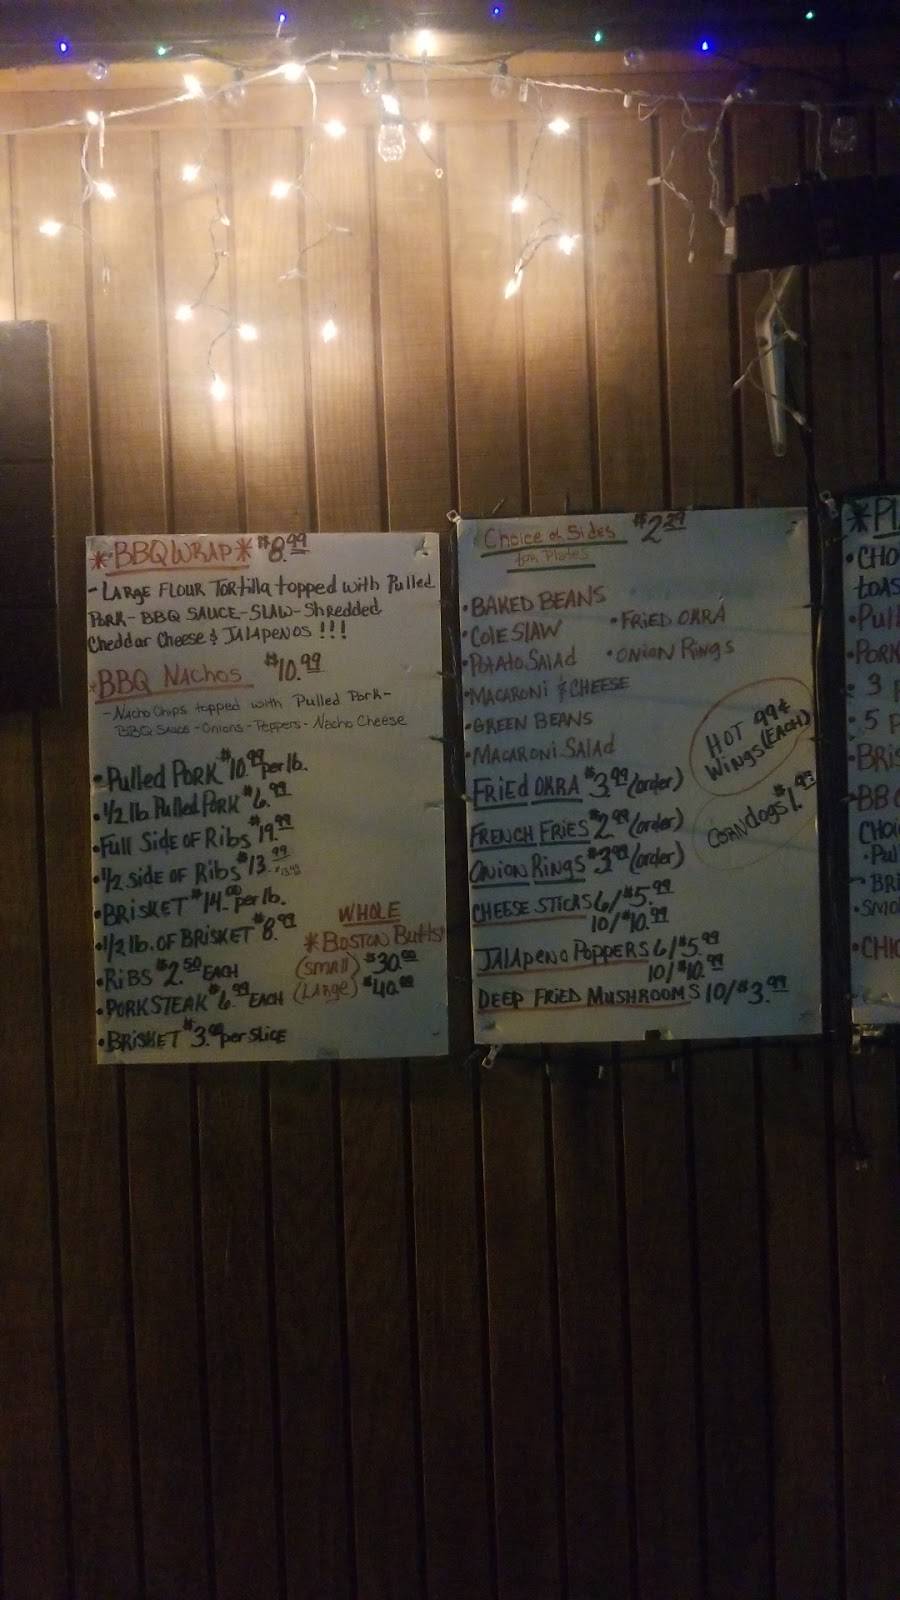 *BBQ WRAP* $8.99
- LARGE FLOUR TORTilla topped with Pulled
PORK - BBQ SAUCE - SLAW - Shredded
Cheddar Cheese & JALAPENOS !!!
BBQ NACHOS $10.99
- NACHO CHIPS topped with Pulled PORK -
BBQ SAUCE - ONIONS - PEPPERS - NACHO CHEESE
• Pulled PORK $10.99 per lb.
• 1/2 lb. Pulled PORK $6.99
• Full Side OF Ribs $19.99
• 1/2 side OF Ribs $13.99
• BRISKET $14.00 per lb.
• 1/2 lb. OF BRISKET $8.99
• RiBS $2.50 EACH
• PORK STEAK $6.99 EACH
• BRISKET $3.00 per SLICE
WHOLE
* BOSTON Butts
(SMALL) $30.00
(LARGE) $40.00
Choice of Sides $2.29
for Plates
• BAKED BEANS
• COLE SLAW
• POTATO SALAD
• MACARONI & CHEESE
• GREEN BEANS
• MACARONI SALAD
• FRIED OKRA
• ONION RINGS
FRIED OKRA $3.99 (order)
FRENCH FRIES $2.99 (order)
ONION RINGS $3.99 (order)
CHEESE STICKS 6/$5.99
10/$10.99
JALAPENO POPPERS 6/$5.99
10/$10.99
DEEP FRIED MUSHROOMS 10/$3.99
HOT 99¢
WINGS (EACH)
CORN dogs $1.93
*PL
• CHO
TOAS
• Pull
• PORK
3 P
• 5 P
• BRIS
• BBQ
CHOI
• Pul
- BRI
• SMO
• CHIC